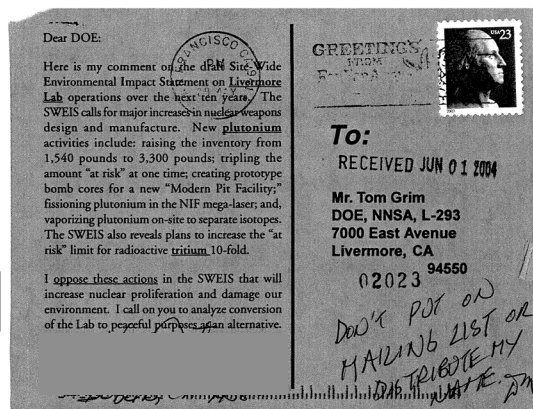 Dear DOE:
Here is my comment on the draft Site-Wide
Environmental Impact Statement on Livermore
Lab operations over the next ten years. The
SWEIS calls for major increases in nuclear weapons
design and manufacture. New plutonium
activities include: raising the inventory from
1,540 pounds to 3,300 pounds; tripling the
amount "at risk" at one time; creating prototype
bomb cores for a new "Modern Pit Facility;"
fissioning plutonium in the NIF mega-laser; and,
vaporizing plutonium on-site to separate isotopes.
The SWEIS also reveals plans to increase the "at
risk" limit for radioactive tritium 10-fold.
I oppose these actions in the SWEIS that will
increase nuclear proliferation and damage our
environment. I call on you to analyze conversion
of the Lab to peaceful purposes as an alternative.
FRANCISCO CA
PM
GREETINGS
FROM
USA 23
To:
RECEIVED JUN 01 2004
Mr. Tom Grim
DOE, NNSA, L-293
7000 East Avenue
Livermore, CA
94550
02023
DON'T PUT ON
MAILING LIST OR
DISTRIBUTE MY
NAME.